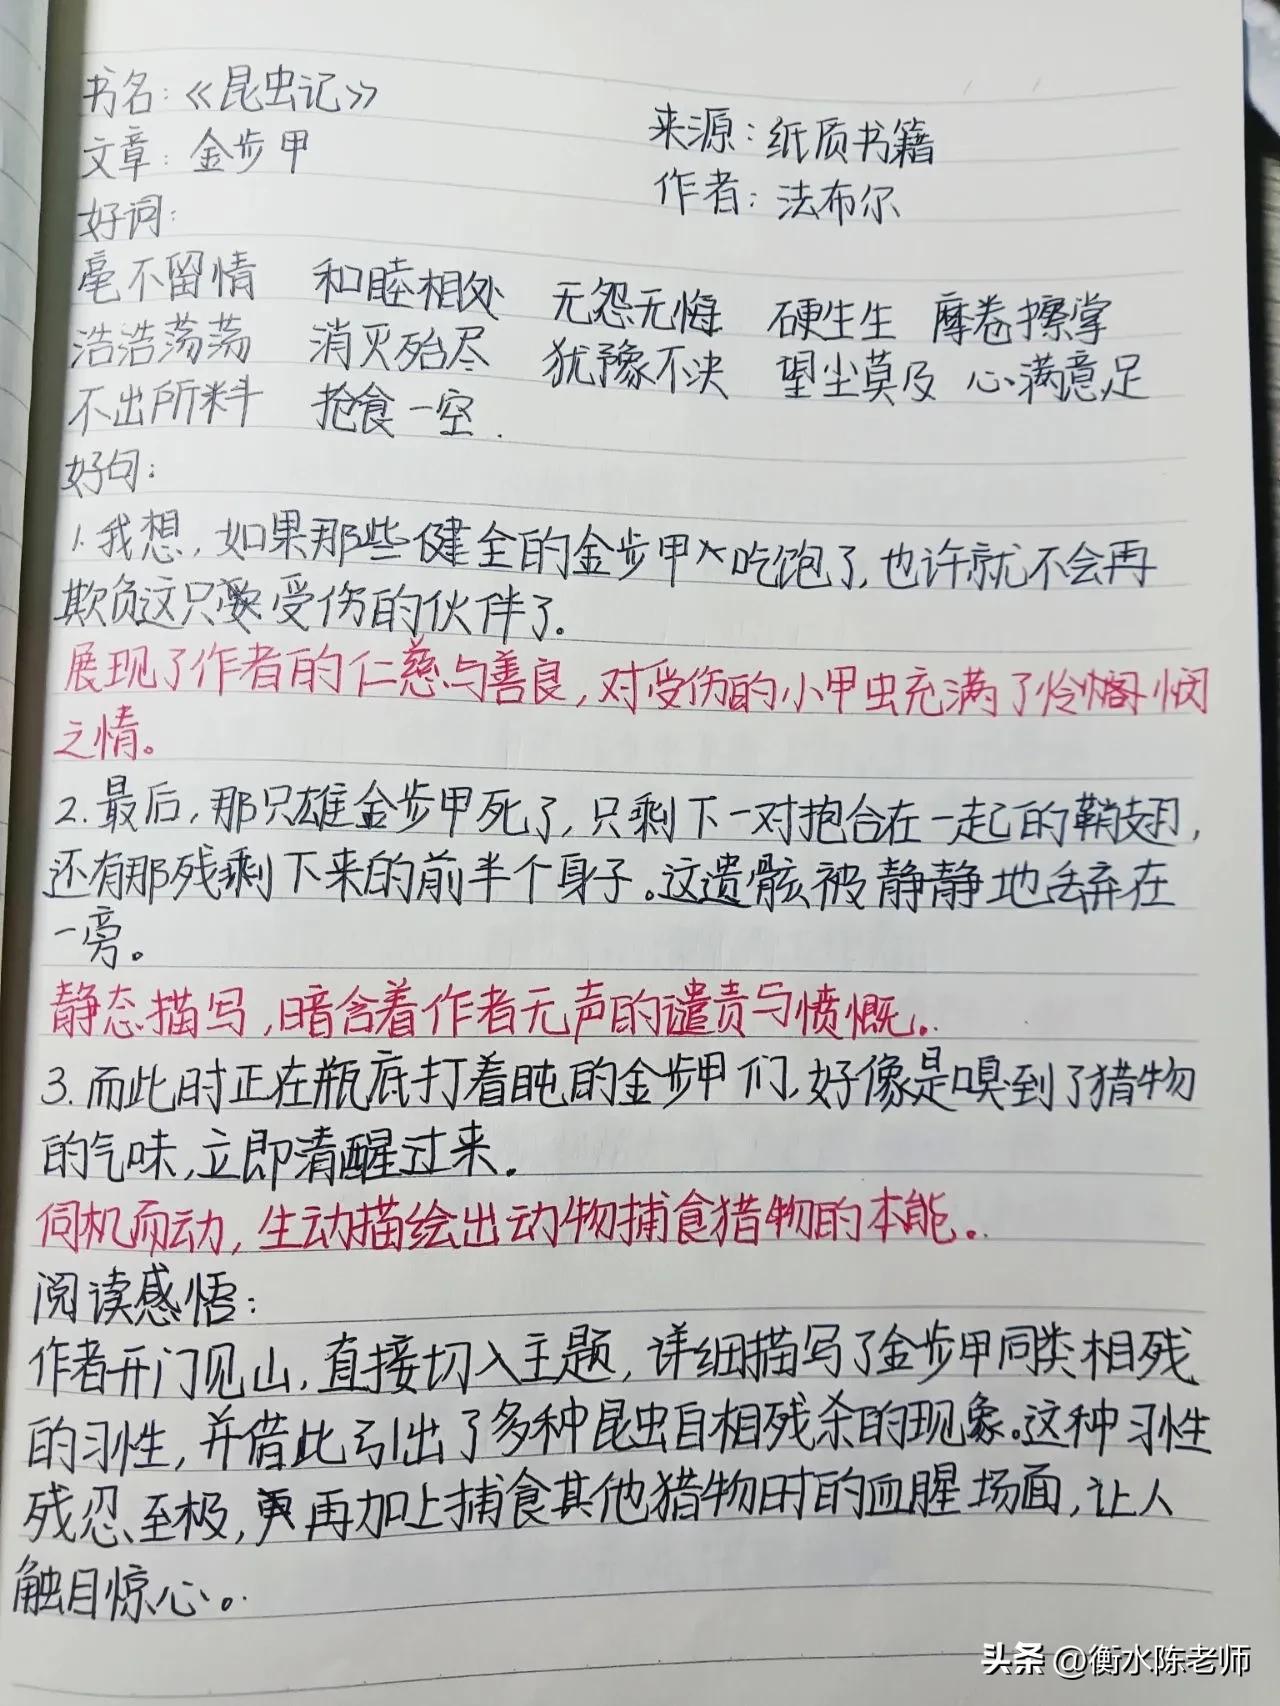 书名：《昆虫记》
来源：纸质书籍
文章：金步甲
作者：法布尔
好词：
毫不留情 和睦相处 无怨无悔 硬生生 摩卷擦掌
浩浩荡荡 消灭殆尽 犹豫不决 望尘莫及 心满意足
不出所料 抢食一空.
好句：
1.我想，如果那些健全的金步甲吃饱了，也许就不会再
欺负这只受伤的伙伴了。
展现了作者的仁慈与善良，对受伤的小甲虫充满了怜悯
之情。
2.最后，那只雄金步甲死了，只剩下一对抱合在一起的鞘翅，
还有那残剩下来的前半个身子。这遗骸被静静地丢弃在
一旁。
静态描写，暗含着作者无声的谴责与愤慨。
3.而此时正在瓶底打着盹的金步甲们，好像是嗅到了猎物
的气味，立即清醒过来。
伺机而动，生动描绘出动物捕食猎物的本能。
阅读感悟：
作者开门见山，直接切入主题，详细描写了金步甲同类相残
的习性，并借此引出了多种昆虫自相残杀的现象。这种习性
残忍至极，再加上捕食其他猎物时的血腥场面，让人
触目惊心。
头条 @衡水陈老师